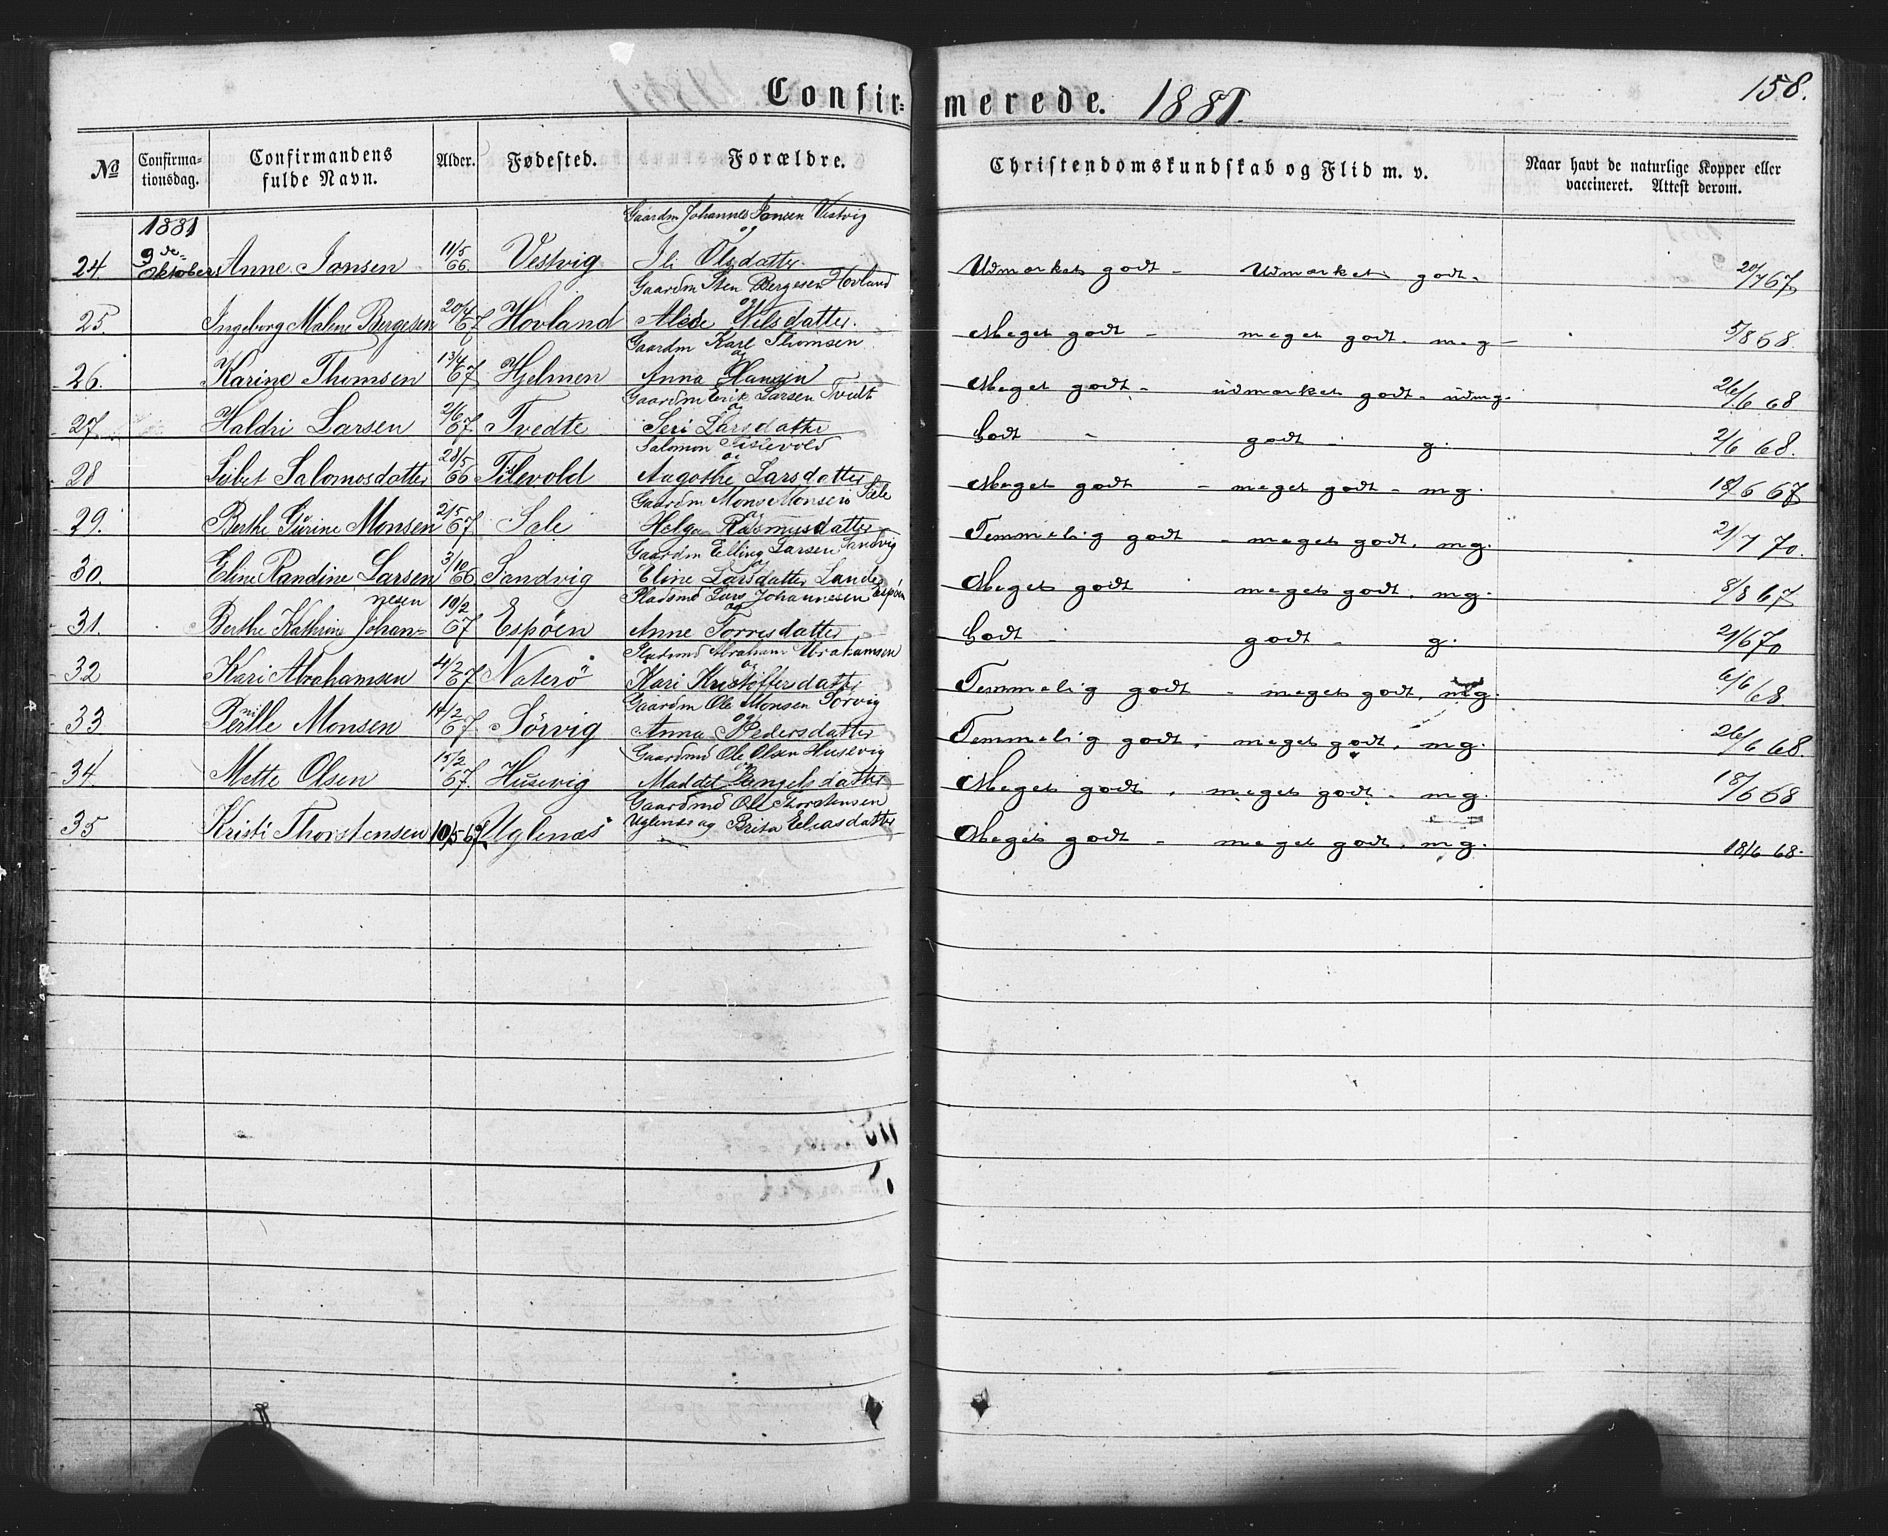 Confir- merede. 1881. 158.
No Confirma-tionsdag. Confirmandens fulde Navn. Alder. Fødested. Forældre. Christendomskundskab og Flid m. v. Naar havt de naturlige Kopper eller vaccineret. Attest derom.
1881 Gaardm Johannes Jansen Vestvig og
24 9de Oktober Anne Jansen 11/5 66. Vestvig Ili Olsdatter. Udmærket godt - Udmærket godt. 20/7 67
Gaardm Sten Bergesen Hovland og
25 Ingeborg Malene Bergesen 20/4 67 Hovland Alise Nilsdatter. Meget godt - meget godt. m g - 5/8 68.
Gaardm Karl Thomsen og
26. Karine Thomsen 13/4 67 Hjelmen Anna Hansen Meget godt - udmærket godt - udmg. 26/6 68
Gaardm Erik Larsen Tvedt og
27. Haldri Larsen 2/6 67 Tvedte Seri Larsdatter Godt - godt - g. 2/6 68.
Salomon Tislevold og
28 Sibet Salomosdatter 28/5 66 Tislevold Aagothe Larsdatter Meget godt - meget godt - mg. 18/6 67
Gaardm Mons Monsen Sæle og
29. Berthe Gurine Monsen 2/5 67 Sæle Helga Rasmusdatter Temmelig godt - meget godt. mg. 21/7 70.
Gaardm Elling Larsen Sandvig og
30. Eline Randine Larsen 3/10 66 Sandvig Eline Larsdatter Lande Meget godt meget godt. mg. 8/8 67
nesen Pladsmd Lars Johannesen Espöen og
31. Berthe Kathrine Johan= 10/2 67 Espöen Anne Torresdatter Godt - godt - g. 21/6 70
Pladsmd Abraham Abrahamsen og
32 Kari Abrahamsen 4/2 67 Naterö Kari Kristoffersdatter Temmelig godt - meget godt, mg. 6/6 68
Gaardm Ole Monsen Sörvig og
33 Pernille Monsen 14/2 67 Sörvig Anna Pedersdatter Temmelig godt, meget godt, mg. 26/6 68.
Gaardmd Ole Olsen Husevig og
34. Mette Olsen 15/2 67. Husevig Maddel Engelsdatter Meget godt, meget godt - mg. 18/6 68
Gaardmd Ole Thorstensen
35 Kristi Thorstensen 10/5 67. Uglenæs Uglenæs og Brita Eliasdatter Meget godt - meget godt. mg. 18/6 68.